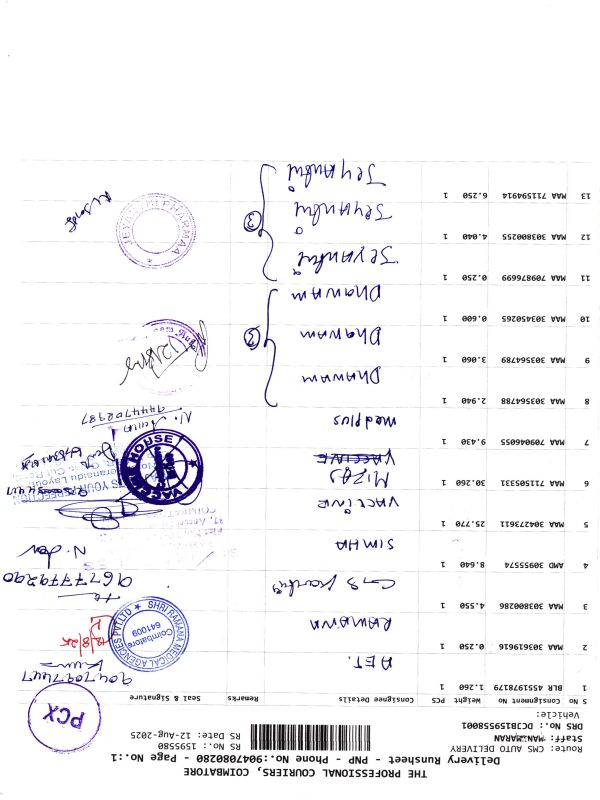 THE PROFESSIONAL COURIERS, COIMBATORE
Delivery Runsheet - PNP - Phone No.:9047080280 - Page No.:1
Route: CMS AUTO DELIVERY
Staff: MANIMARAN
DRS No.: DCJB1595580001
Vehicle:
RS No.: 1595580
RS Date: 12-Aug-2025
PCX
S No Consignment No Weight PCS Consignee Details Remarks Seal & Signature
1 BLR 451959179 1.260 1 AET.
9047097447
2 MAA 361639616 0.250 1 RAMANA
SHRI RAMANA MEDICAL AGENCIES PVT LTD
Coimbatore
641009
12/8/25
3 MAA 303800286 4.550 1
9677779290
4 AMD 30955574 8.640 1 SIMHA
5 MAA 304273611 25.770 1 VACCINE
6 MAA 711506331 30.260 1 VACCINE
VACCINE HOUSE
7 MAA 709046055 9.430 1 Medplus
9444702987
8 MAA 303564788 2.940 1 DHANAM
9 MAA 303564789 3.060 1 DHANAM
3
10 MAA 303450265 0.600 1 DHANAM
11 MAA 709876699 0.250 1 Jeyanthi
12 MAA 303800255 4.040 1 Jeyanthi
3
JEYANTHI PHARMAA
13 MAA 711594914 6.250 1 Jeyanthi